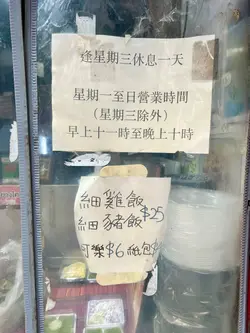 逢星期三休息一天
星期一至日營業時間
(星期三除外)
早上十一時至晚上十時
細雞飯
細豬飯 $25
可樂$6 紙包